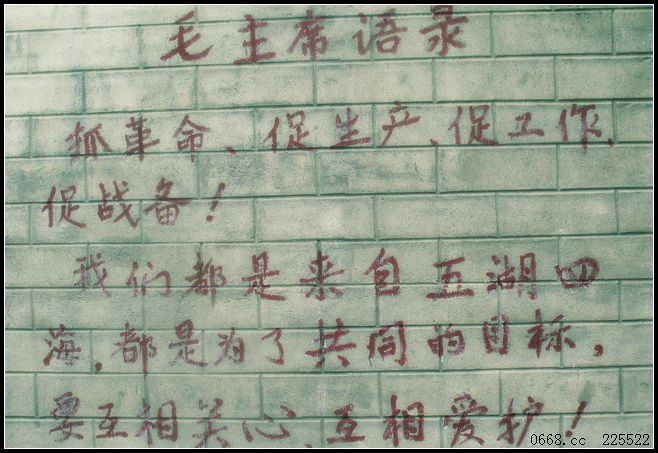 毛主席语录
抓革命、促生产、促工作、
促战备！
我们都是来自五湖四
海，都是为了共同的目标，
要互相关心、互相爱护！
0668.cc 225522